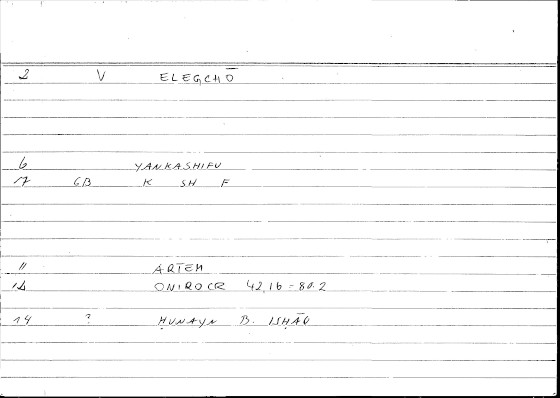 2 V ELEGCHŌ
6 YANKASHIFU
7 GB K SH F
11 ARTEM
12 ONIROCR 42,16 - 80.2
14 ? ḤUNAYN B. ISḤĀQ